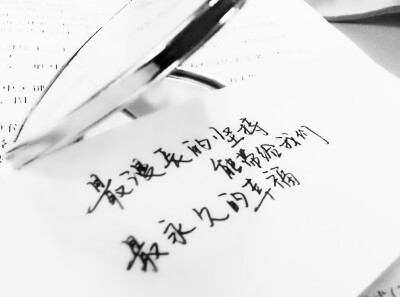 最漫长的坚持
能带给我们
最永久的幸福